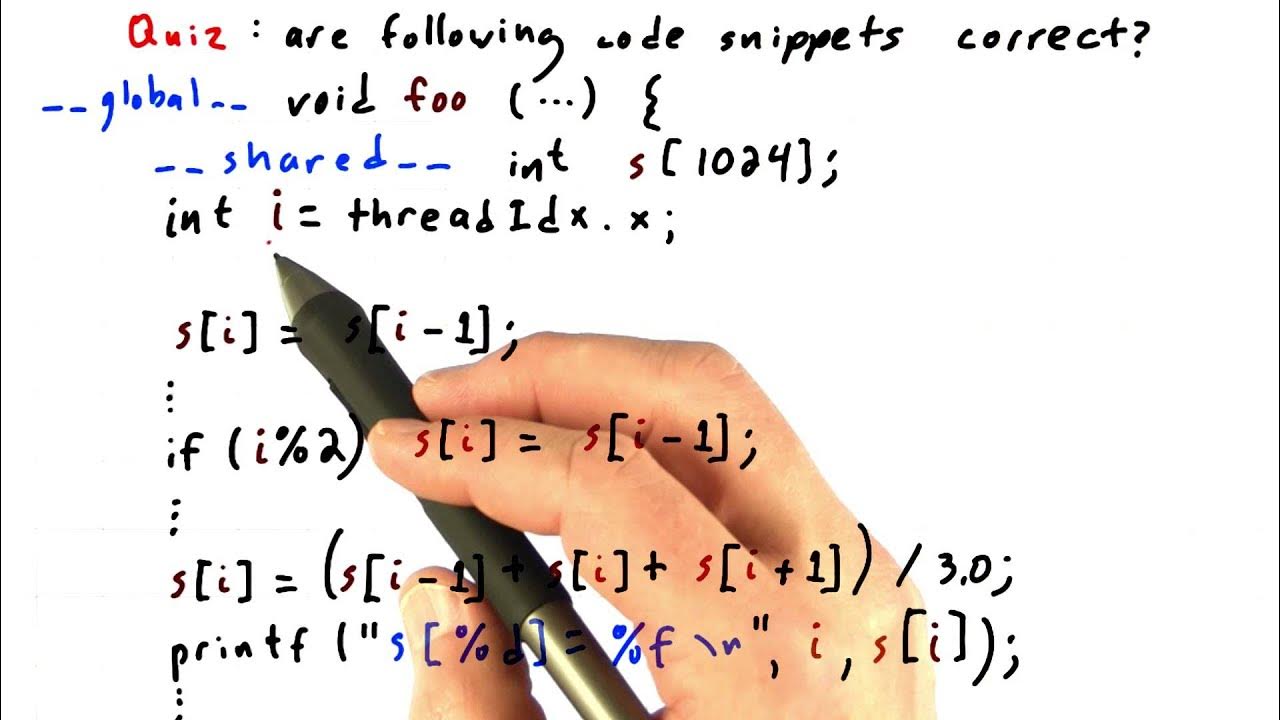 Quiz : are following code snippets correct?
__global__ void foo (...) {
__shared__ int s[1024];
int i = threadIdx.x;
s[i] = s[i-1];
if (i%2) s[i] = s[i-1];
s[i] = (s[i-1] + s[i] + s[i+1]) / 3.0;
printf ("s[%d]=%f \n", i, s[i]);